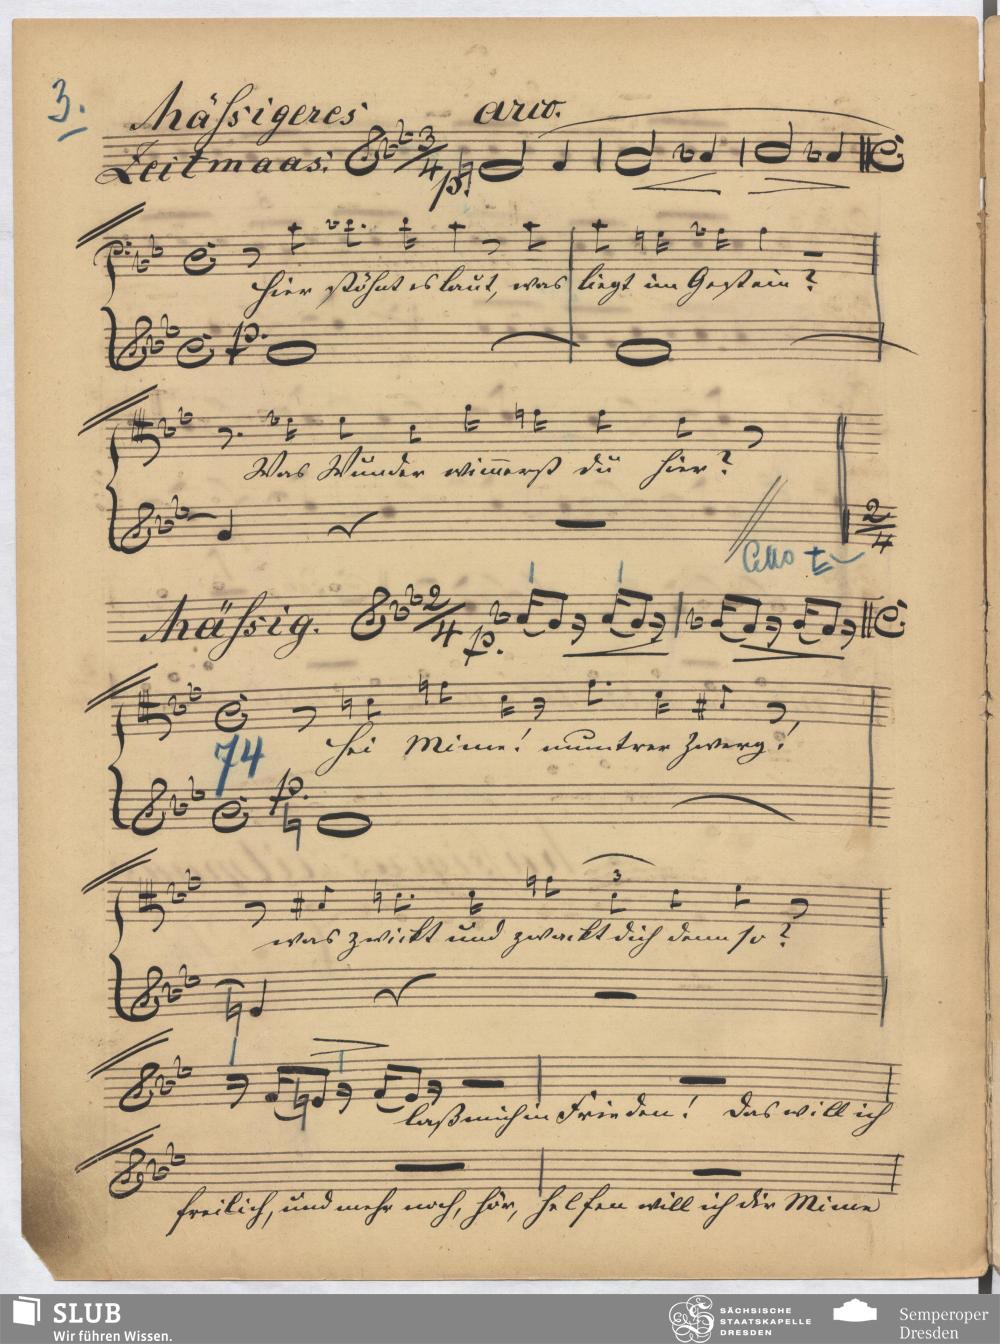 3.
Mässigeres arco.
Zeitmaas: 3/4 p.
Hier stöhnt es laut, was liegt im Gestein?
p.
Was Wunder wimmerst du hier?
2/4
Cello
Mässig. 2/4 p.
Hei Mime! muntrer Zwerg!
74 p.
3
was zwickt und zwackt dich denn so?
laß mich in Frieden! Das will ich
freilich, und mehr noch, hör, helfen will ich dir Mime
SLUB
Wir führen Wissen.
SÄCHSISCHE
STAATSKAPELLE
DRESDEN
Semperoper
Dresden